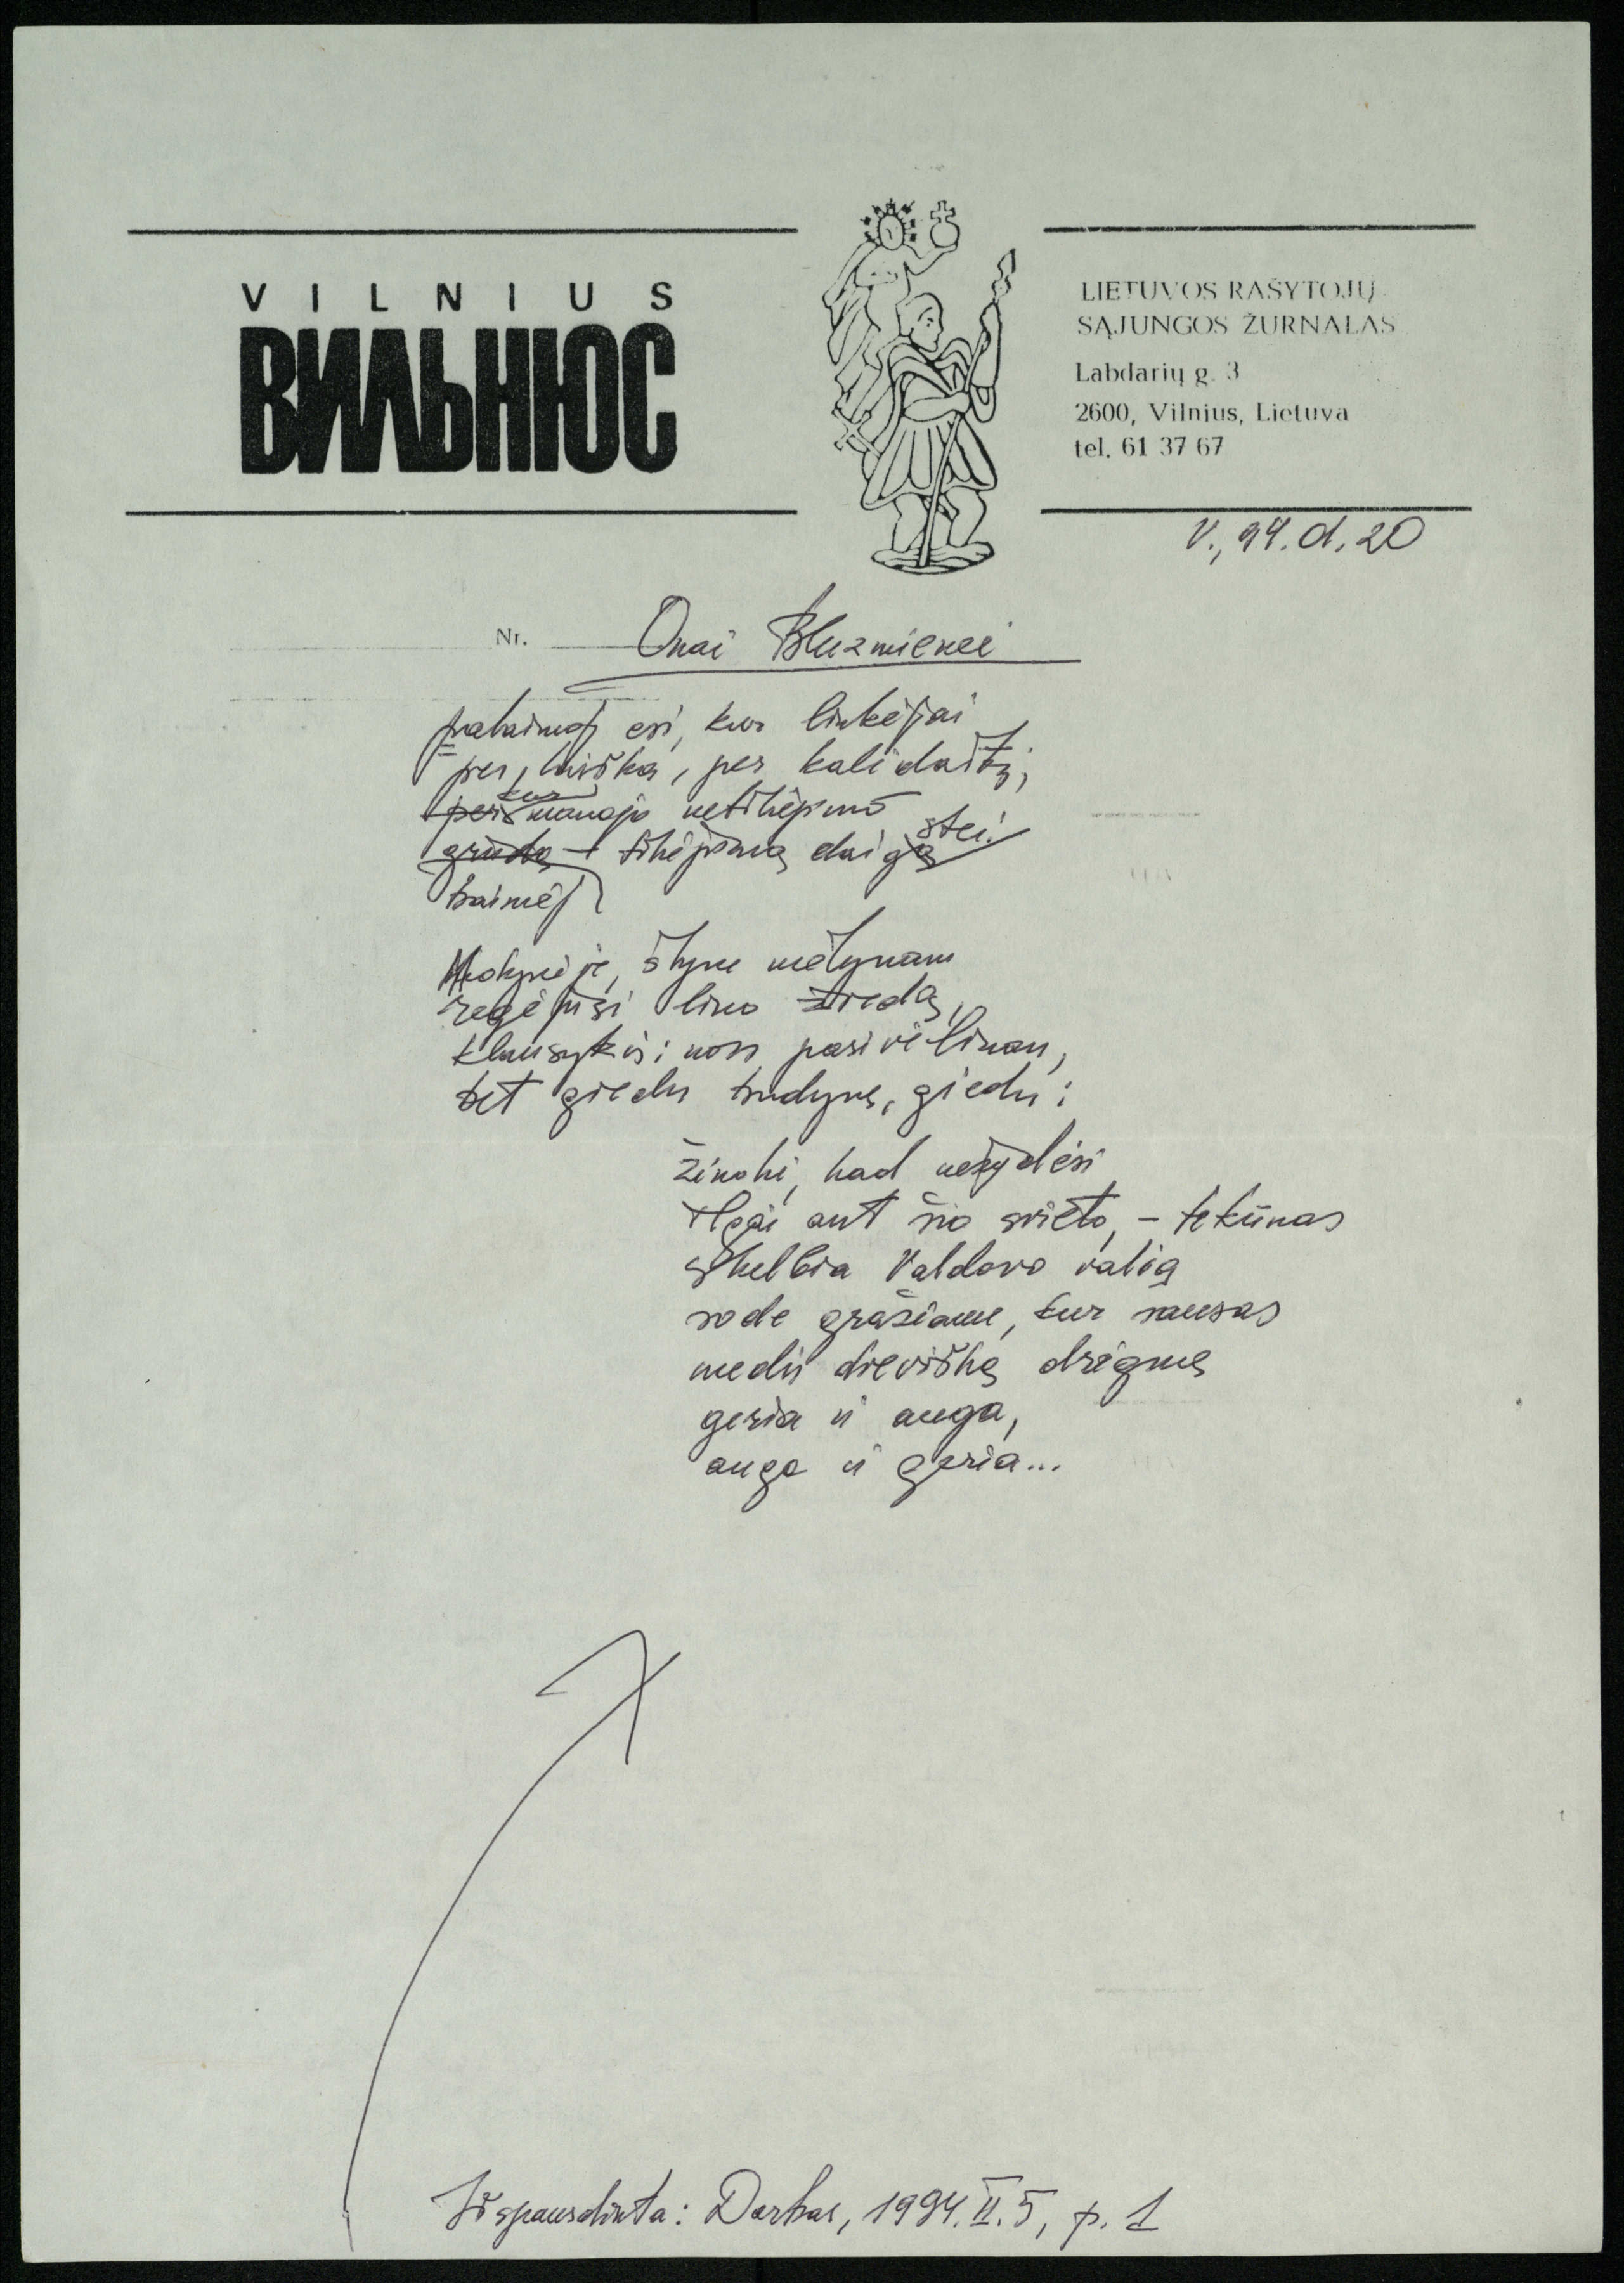 VILNIUS
ВИЛЬНЮС
LIETUVOS RAŠYTOJŲ
SĄJUNGOS ŽURNALAS
Labdarių g. 3
2600, Vilnius, Lietuva
tel. 61 37 67
V., 94. 01. 20
Nr.
Onai Bluzmienei
esi, kur linkėjai
per laišką, per kalidaitį,
per kur manojo netikėjimo
grūdą – tikėjimą daigą stei.
baimėj
Mokyneje, šiuve mėlynam
regėjusi lino žiedą,
klausykis: nors pasivėlinau,
bet giedu budynę, giedu:
žinoki, kad nežydėsi
ilgai ant šio svieto, – tekūnas
skelbia Valdovo valią
sode gražiame, kur sausas
medis dievišką drėgmę
geria ir auga,
auga ir geria...
Išspausdinta: Darbas, 1994. II. 5, p. 1